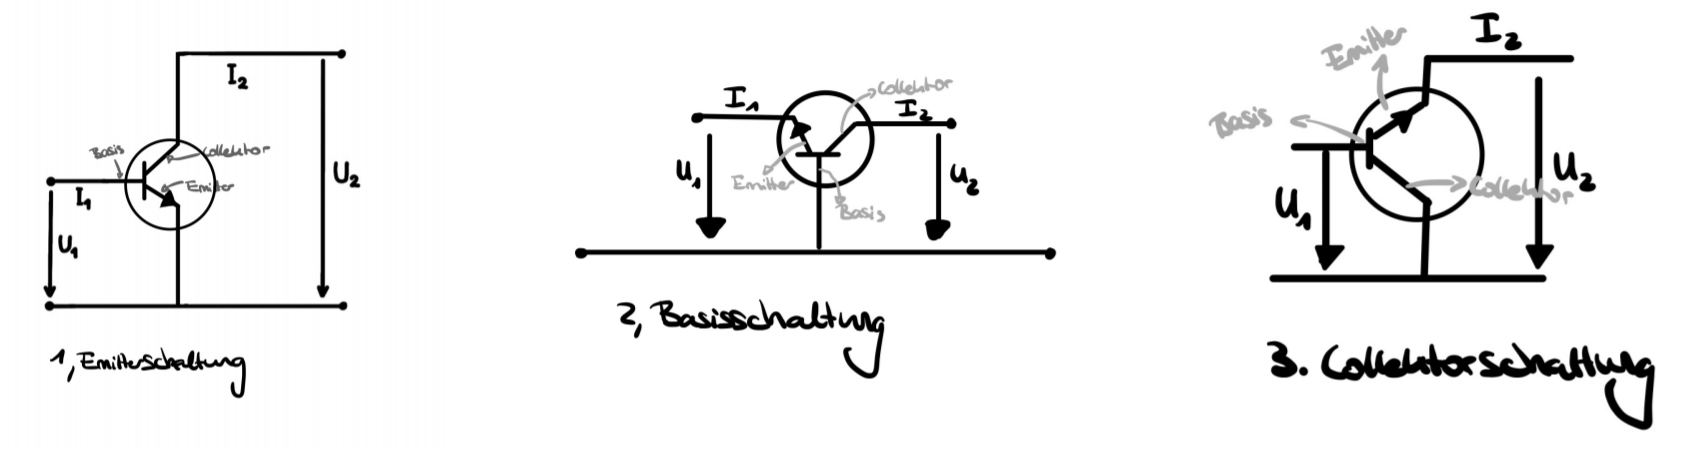 I₂
Basis
Collektor
U₂
Emitter
I₁
U₁
1, Emitterschaltung
I₁
Collektor
I₂
U₁
Emitter
U₂
Basis
2, Basisschaltung
Emitter
I₂
Basis
U₂
Collektor
U₁
3. Collektorschaltung